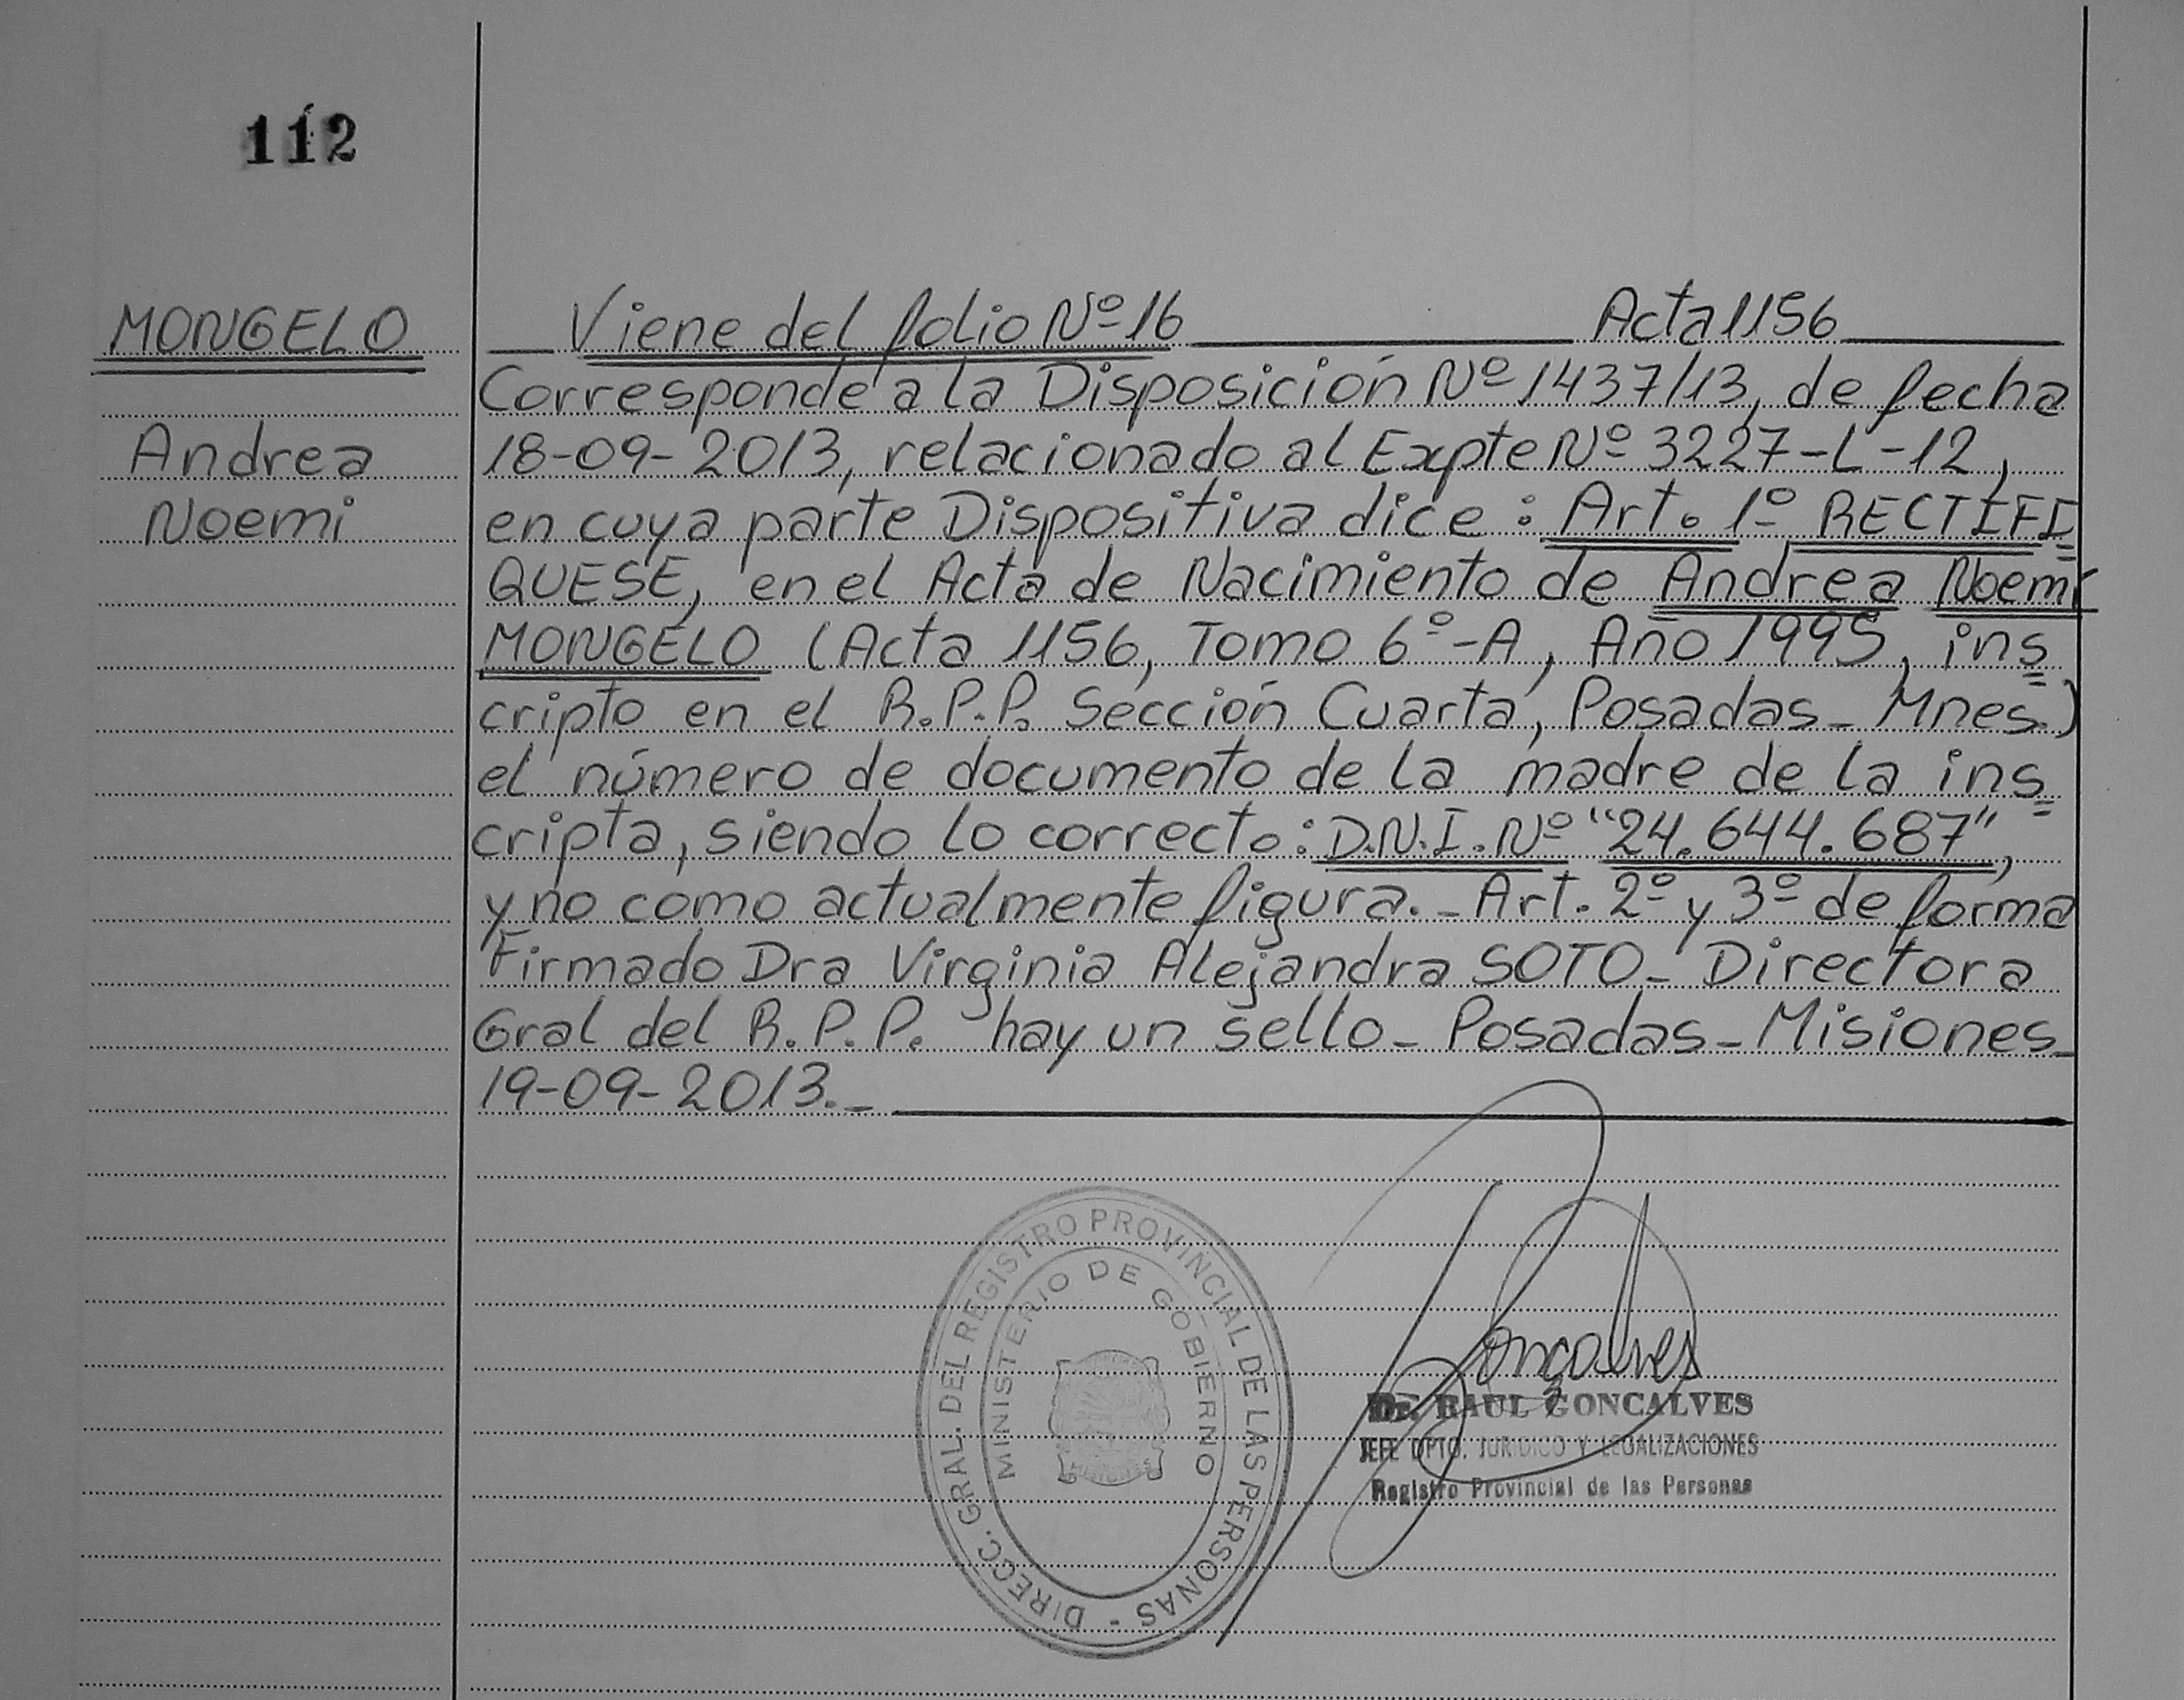 112
MONGELO
Andrea
Noemi
Viene del folio Nº 16 Acta 1156
Corresponde a la Disposición Nº 1437/13, de fecha
18-09-2013, relacionado al Expte Nº 3227-L-12,
en cuya parte Dispositiva dice: Art. 1º RECTIFI=
QUESE, en el Acta de Nacimiento de Andrea Noemi
MONGELO (Acta 1156, Tomo 6º-A, Año 1995, ins=
cripto en el R.P.P. Sección Cuarta, Posadas - Mnes.)
el número de documento de la madre de la ins=
cripta, siendo lo correcto: D.N.I. Nº "24.644.687",
y no como actualmente figura.- Art. 2º y 3º de forma
Firmado Dra Virginia Alejandra SOTO - Directora
Gral del R.P.P. hay un sello - Posadas - Misiones -
19-09-2013.-
DIRECC. GRAL. DEL REGISTRO PROVINCIAL DE LAS PERSONAS -
MINISTERIO DE GOBIERNO
MISIONES
Gonçalves
Dr. RAUL GONCALVES
JEFE DPTO. JURIDICO Y LEGALIZACIONES
Registro Provincial de las Personas